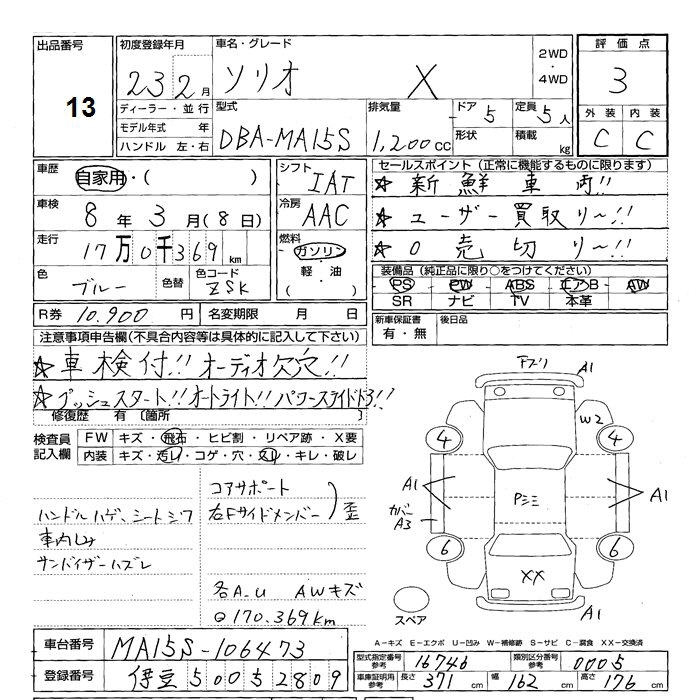 出品番号
13
初度登録年月
23 2月
ディーラー・並行
モデル年式 年
ハンドル 左・右
車名・グレード
ソリオ X
2WD
・
4WD
型式
DBA-MA15S
排気量
1,200cc
ドア 5
形状
定員 5人
積載 kg
評価点
3
外装 内装
C C
車歴
自家用・( )
車検
8年3月(8日)
走行
17万0千369km
色
ブルー
色替
色コード
ZSK
シフト
IAT
冷房
AAC
燃料
ガソリン
軽・油
( )
セールスポイント(正常に機能するものに限ります)
☆新鮮車両!!
☆ユーザー買取り〜!!
☆0売切り〜!!
装備品(純正品に限り○をつけてください)
PS PW ABS エアB AW
SR ナビ TV 本革
R券 10,900円
名変期限 月 日
新車保証書
有・無
後日品
注意事項申告欄(不具合内容等は具体的に記入して下さい)
☆車検付!!オーディオ欠穴!!
☆プッシュスタート!!オートライト!!パワースライドドア!!
修復歴 有〔箇所 〕
検査員
記入欄
FW キズ・飛石・ヒビ割・リペア跡・X要
内装 キズ・汚レ・コゲ・穴・スレ・キレ・破レ
コアサポート
右Fサイドメンバー 歪
ハンドルハゲ、シートシワ
車内しみ
サンバイザーハズレ
各A.U AWキズ
170.369km
Fブリ
A1
W2
4 4
A1 A1
Pミミ
カバー
A3
6 6
XX
A1
スペア
A-キズ E-エクボ U-凹み W-補修跡 S-サビ C-腐食 XX-交換済
車台番号
MA15S-106473
登録番号
伊豆 500 52809
型式指定番号
参考
16746
類別区分番号
参考
0005
車庫証明用
参考
長さ 371 cm 幅 162 cm 高さ 176 cm